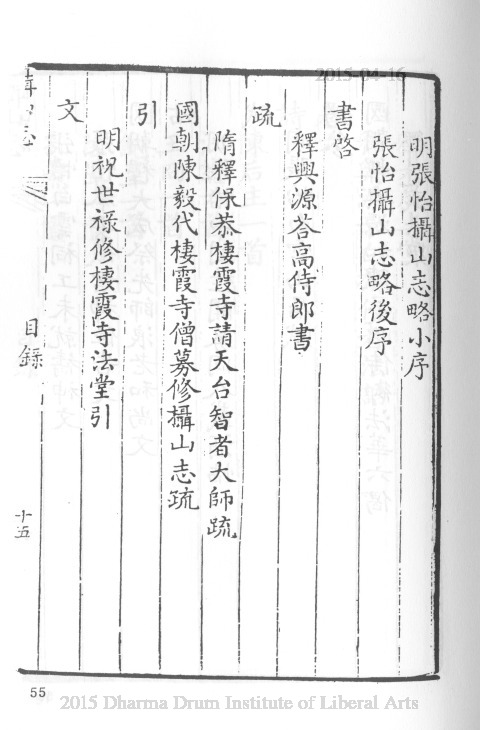 2015-04-16
明張怡攝山志略小序
張怡攝山志略後序
書啓
釋興源荅高侍郎書
疏
隋釋保恭棲霞寺請天台智者大師疏
國朝陳毅代棲霞寺僧募修攝山志疏
引
明祝世祿修棲霞寺法堂引
文
目錄
十五
55
2015 Dharma Drum Institute of Liberal Arts